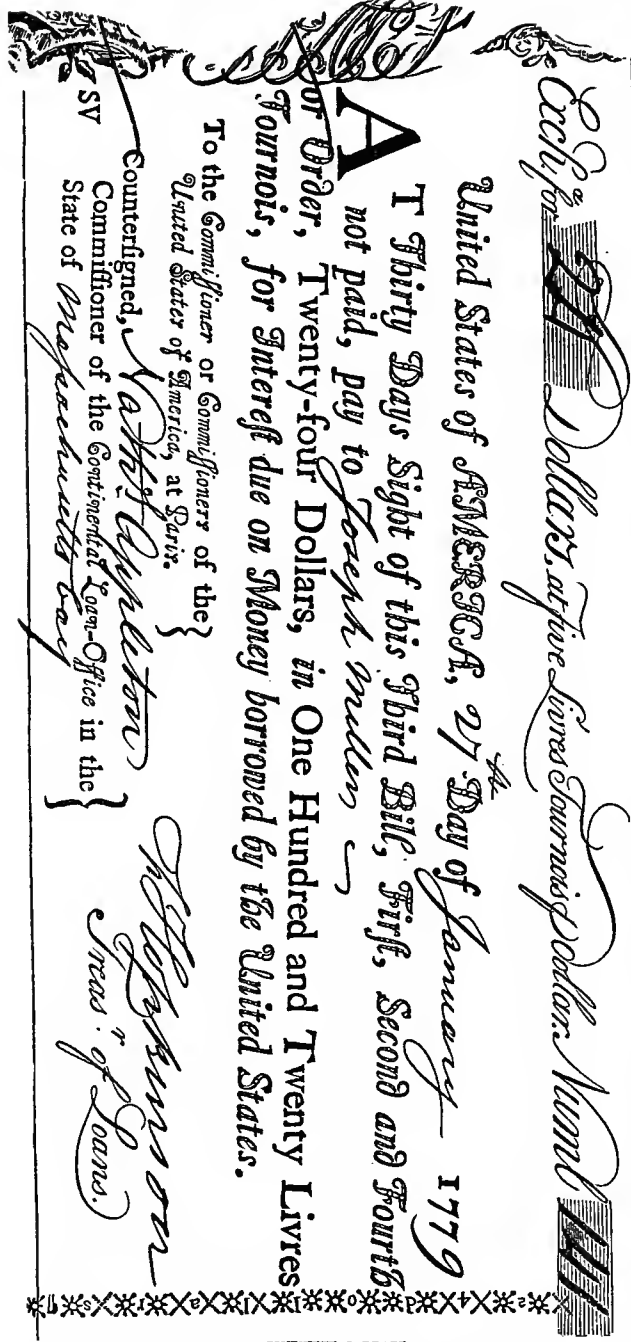 Exchᵃ for 24 Dollars, at five Livres Tournois ⅌ Dollar. Numb
United States of AMERICA, 27th Day of January 1779
AT Thirty Days Sight of this Third Bill, First, Second and Fourth
not paid, pay to Joseph Miller
or Order, Twenty-four Dollars, in One Hundred and Twenty Livres
Tournois, for Interest due on Money borrowed by the United States.
To the Commissioner or Commissioners of the
United States of America, at Paris.
F Hopkinson
Treasr. of Loans.
Countersigned, Nathl Appleton
SV
Commissioner of the Continental Loan-Office in the
State of Massachusetts bay